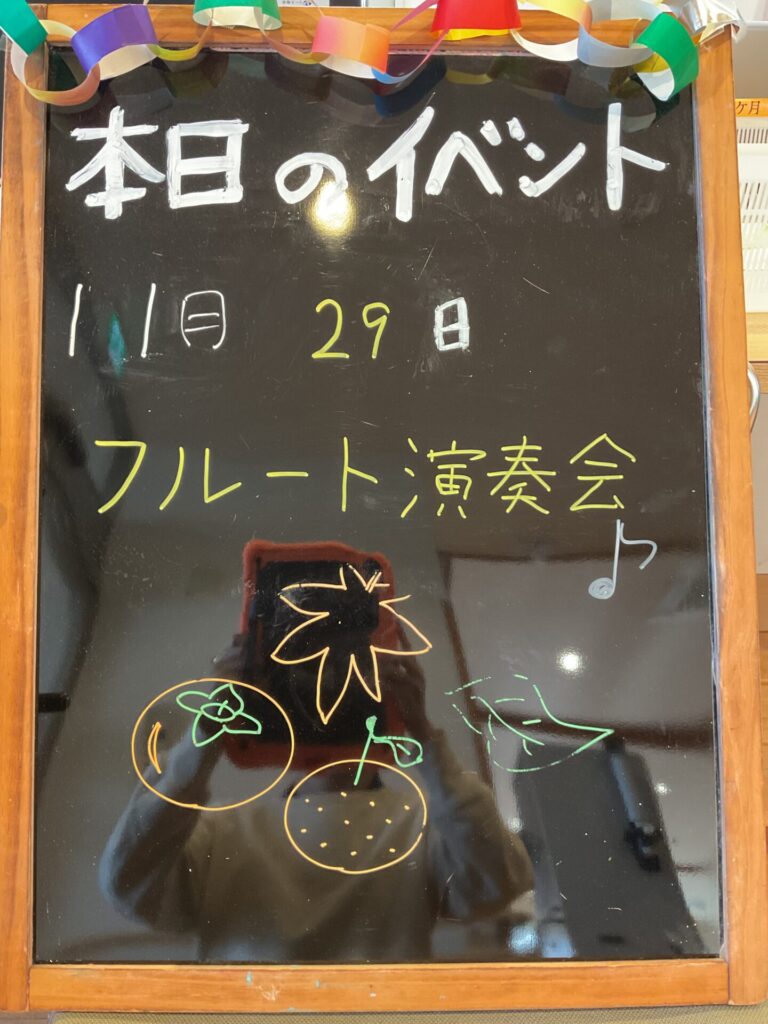 本日のイベント
11月 29日
フルート演奏会
ケ月